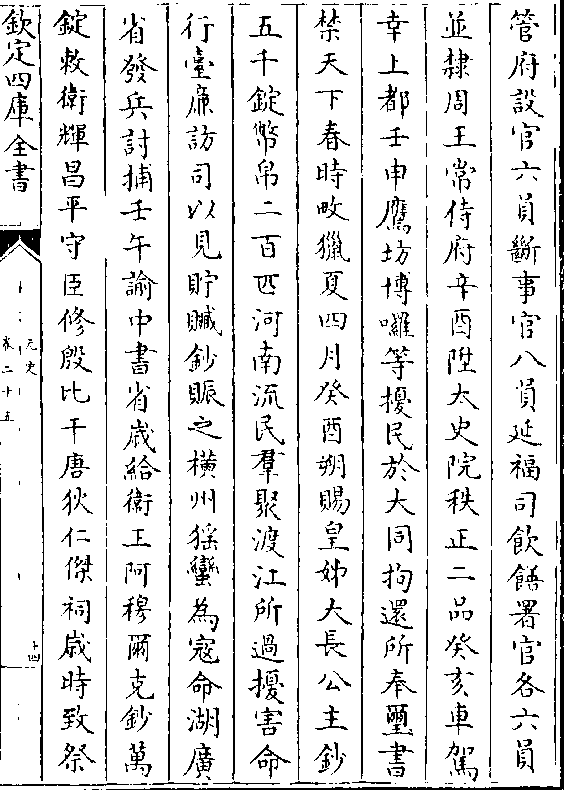 管府設官六員斷事官八員延福司飲膳署官各六員
並隸周王常侍府辛酉陞太史院秩正二品癸亥車駕
幸上都壬申鷹坊博囉等擾民於大同拘還所奉璽書
禁天下春時畋獵夏四月癸酉朔賜皇姊大長公主鈔
五千錠幣帛二百匹河南流民羣聚渡江所過擾害命
行臺廉訪司以見貯贓鈔賑之橫州猺蠻為寇命湖廣
省發兵討捕壬午諭中書省歲給衛王阿穆爾克鈔萬
錠敕衛輝昌平守臣修殷比干唐狄仁傑祠歲時致祭
欽定四庫全書
元史
卷二十五
十四